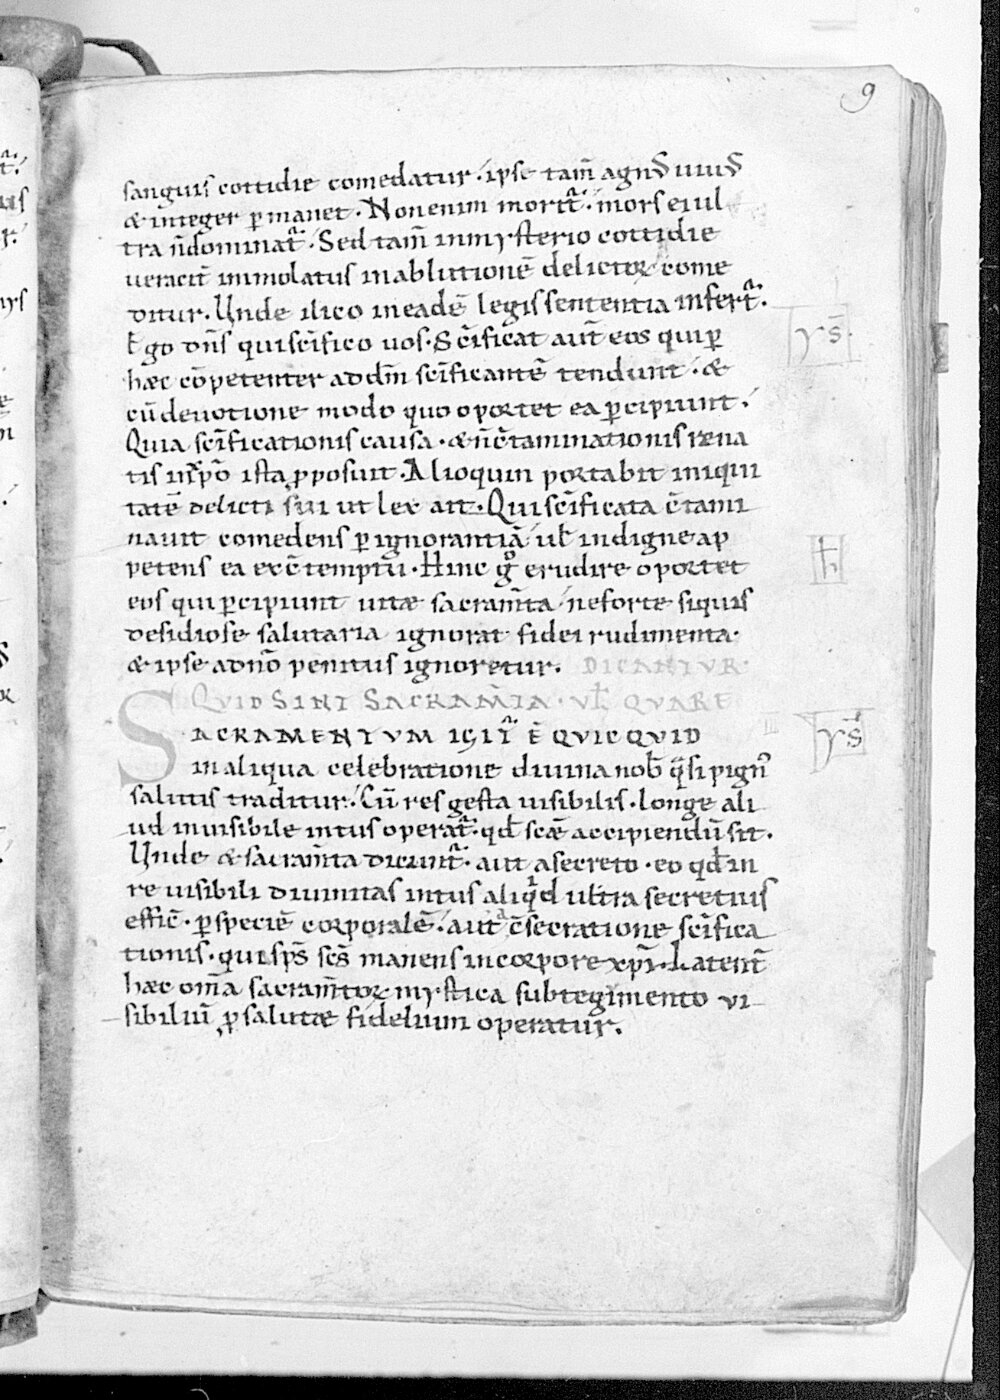 9
sanguis cottidie comedatur. ipse tam̄ agnus uiuus
& integer ꝑmanet. Non enim morit᷑. mors ei ul
tra n̄ dominat᷑. Sed tam̄ in mysterio cottidie
ueracit̄ immolatus in ablutionē delictoꝝ come
ditur. Unde ilico in eadē legis sententia infert᷑.
Ego dn̄s qui sc̄ifico uos. Sc̄ificat aut̄ eos qui ꝑ
hæc cōpetenter ad dm̄ sc̄ificantē tendunt. &
cū deuotione modo quo oportet ea ꝑcipiunt.
Quia sc̄ificationis causa. & n̄ c̄taminationis rena
tis in xp̄o ista ꝓposuit. Alioquin portabit iniqui
tatē delicti sui ut lex ait. Qui sc̄ificata c̄tami
nauit comedens ꝑ ignorantiā ul̄ indigne ap
petens ea ex c̄temptu. Hinc gͦ erudire oportet
eos qui ꝑcipiunt uitæ sacram̄ta ne forte siquis
desidiose salutaria ignorat fidei rudimenta.
& ipse a dn̄o penitus ignoretur. DICANTVR.
QUID SINT SACRAM̄TA. VL̄ QVARE
SACRAMENTVM IGIT᷑ Ē QVICQVID
in aliqua celebratione diuina nob̄ q̄si pign᷒
salutis traditur. Cū res gesta uisibilis. longe ali
ud inuisibile intus operat᷑. qd̄ scæ accipiendū sit.
Unde & sacram̄ta dicunt᷑. aut a secreto. eo qd̄ in
re uisibili diuinitas intus aliqͥd ultra secretius
effic̄. ꝑ speciē corporalē. aut a c̄secratione sc̄ifica
tionis. qui sp̄s sc̄s manens in corpore xp̄i. Latent̄
hæc om̄a sacram̄toꝝ mystica sub tegimento ui
sibiliū ꝓ salutæ fidelium operatur.
ys̄.
ys̄